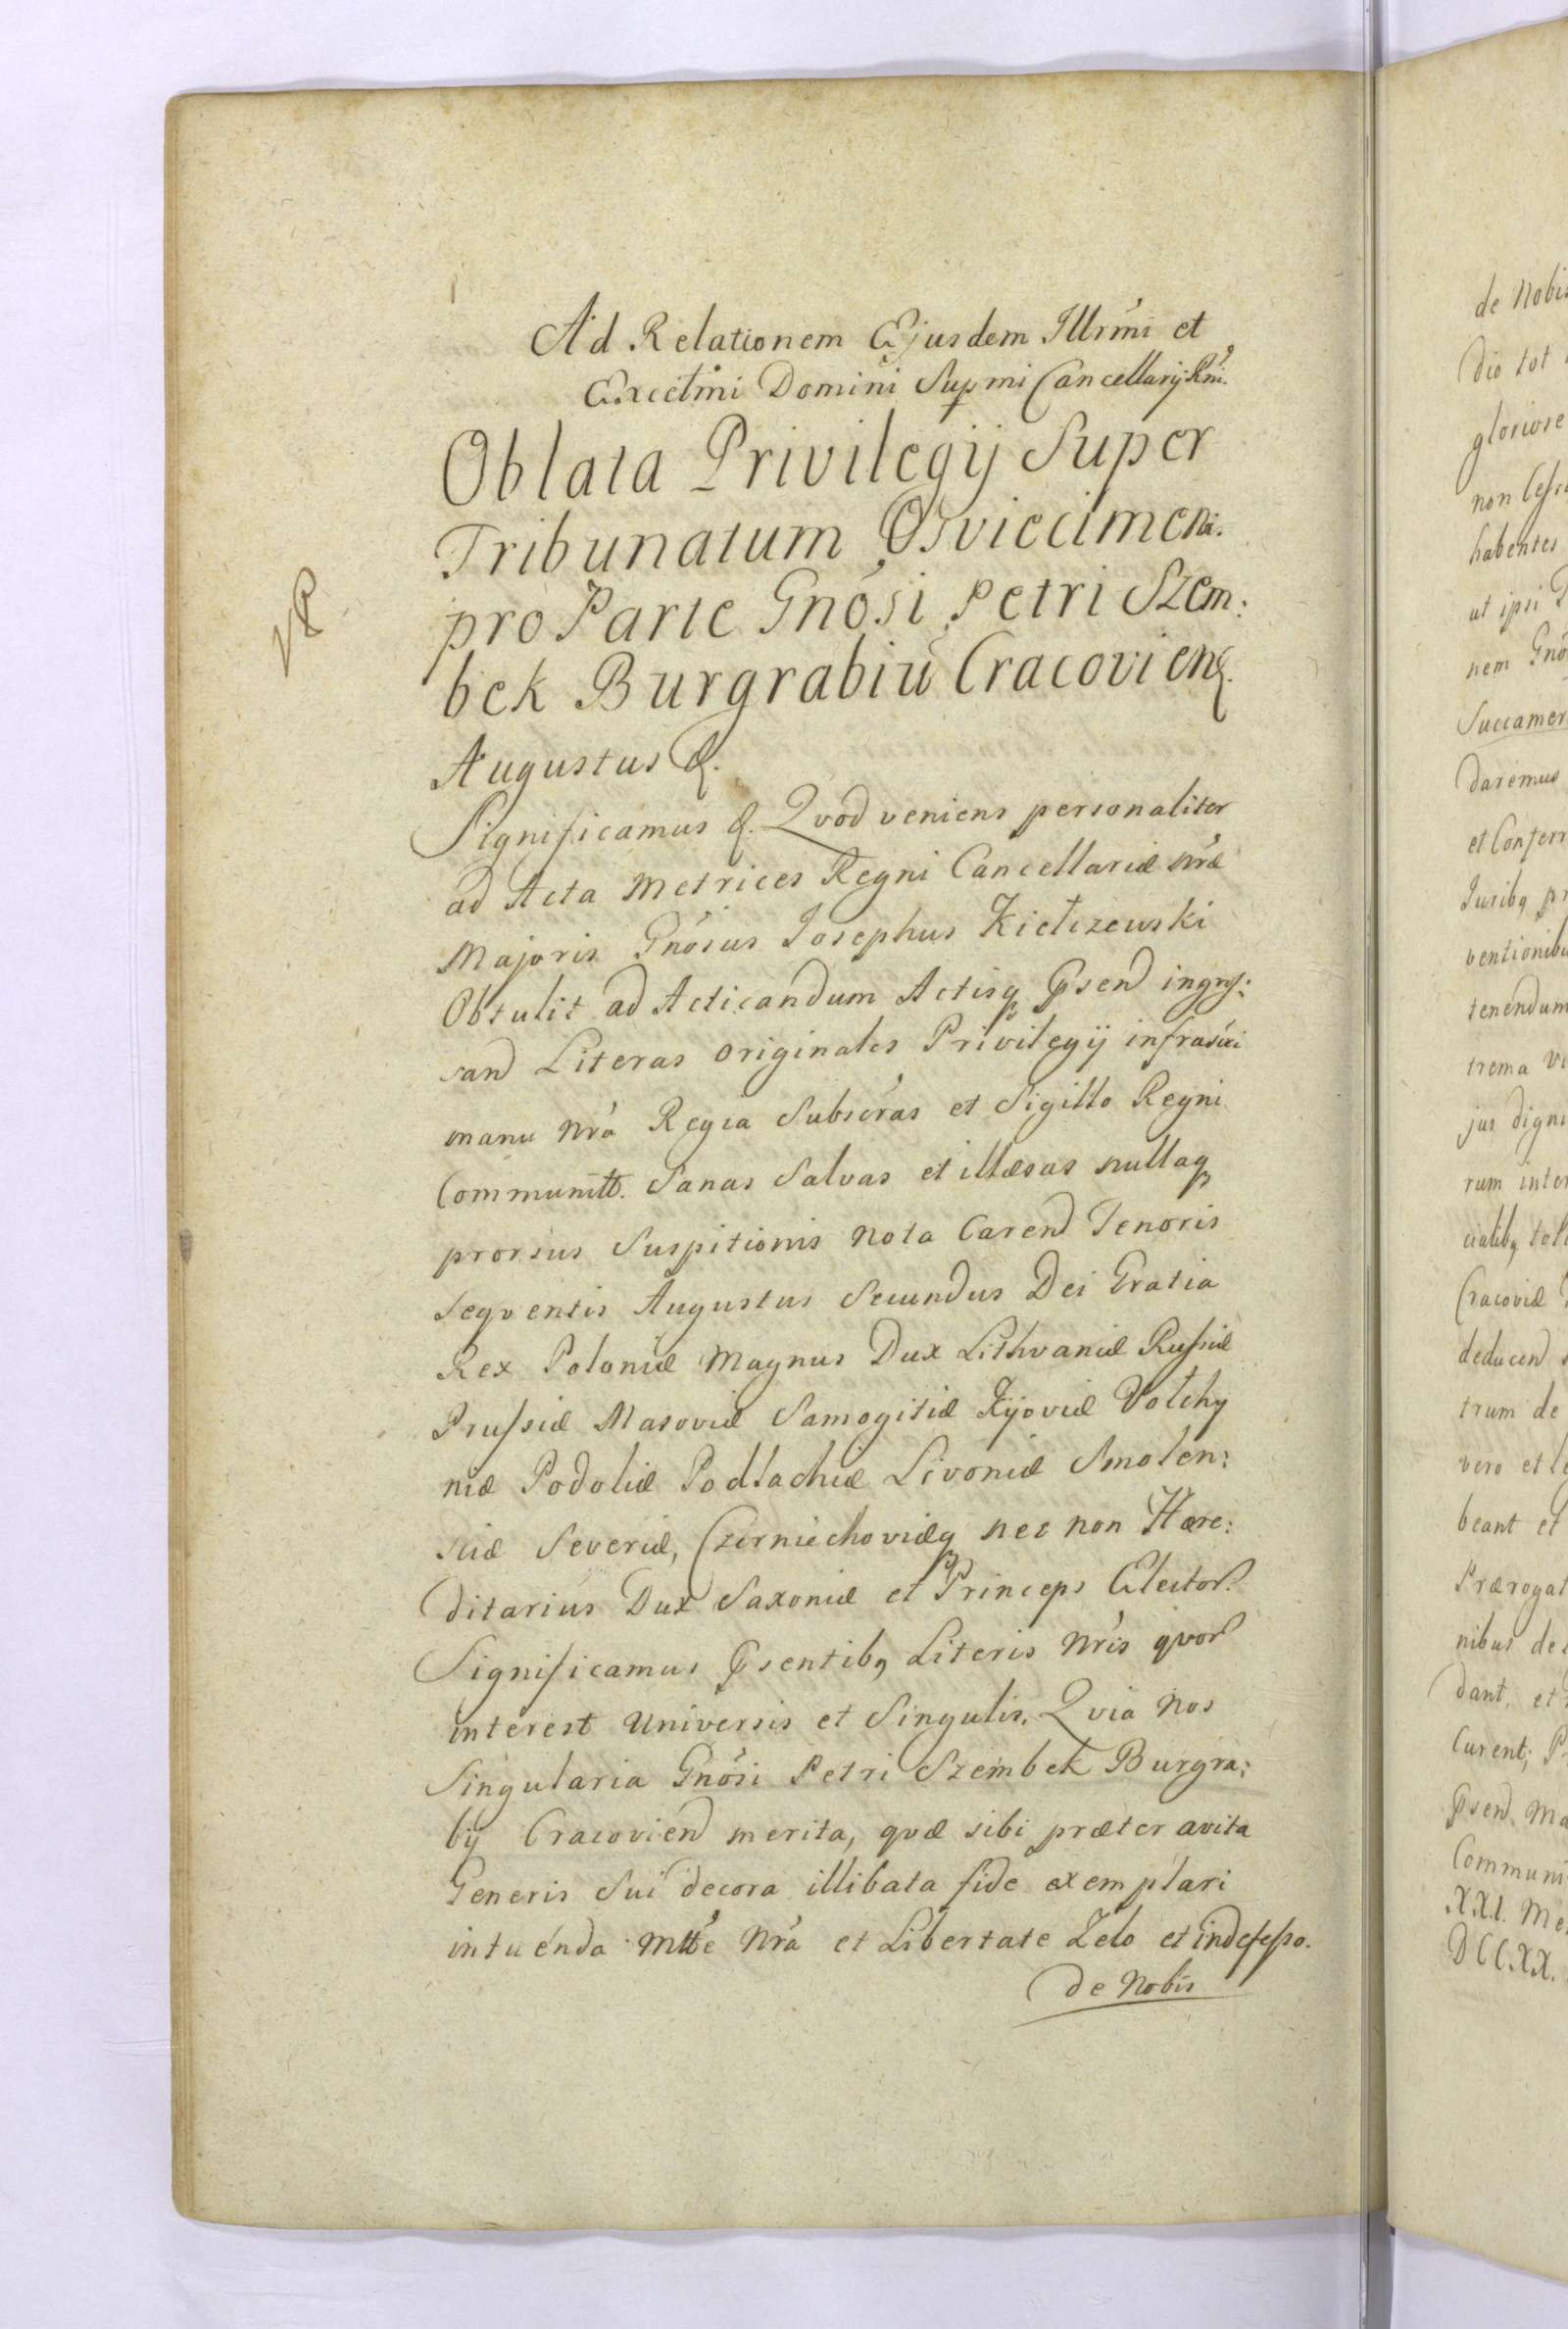 Ad Relationem Ejusdem Illrmi et
Excctmi Domini Supmi Cancellarij Rni.
Oblata Privilegij Super
Tribunatum Osviecimen.
pro Parte Gnosi Petri Szem:
bek Burgrabiu Cracovien.
VR
Augustus &.
Significamus &. Qvod veniens personaliter
ad Acta Metrices Regni Cancellariæ nræ
Majoris Gnosus Josephus Kiełczewski
Obtulit ad Acticandum Actisq Psend ingros:
sand Literas originales Privilegij infrascri
manu nra Regia Subscras et Sigillo Regni
Communitt. Sanas Salvas et illæsas nullaq
prorsus Suspitionis nota Carend Tenoris
seqventis Augustus Secundus Dei Gratia
Rex Poloniæ Magnus Dux Lithvaniæ Russiæ
Prussiæ Masoviæ Samogitiæ Kijoviæ Volhy
niæ Podoliæ Podlachiæ Livoniæ Smolen:
sciæ Severiæ, Czerniechoviæq nec non Hære:
ditarius Dux Saxoniæ et Princeps Elector.
Significamus Psentibq Literis Nris qvor
interest Universis et Singulis. Qvia Nos
Singularia Gnosi Petri Szembek Burgra:
bij Cracoviend merita, qvæ sibi præter avita
Generis Sui decora illibata fide exemplari
intuenda Mtte Nra et Libertate Zelo et indefesso.
de Nobis
de Nobis
dio tot
gloriose
non
habentes
ut ipsi
nem Gno
Succamer
daremus
et Conferr
Juribq pr
ventionibu
tenendum
trema
jus digni
rum inter
cialibq
Cracoviæ
deducend
trum de
vero et
beant et
Prærogat
nibus de
dant, et
Curent;
Psend Ma
Communi
XXI. Me
DCCXX.